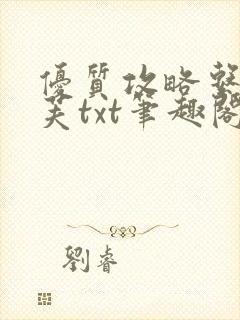 優質攻略整
芙txt筆趣閣
劉睿